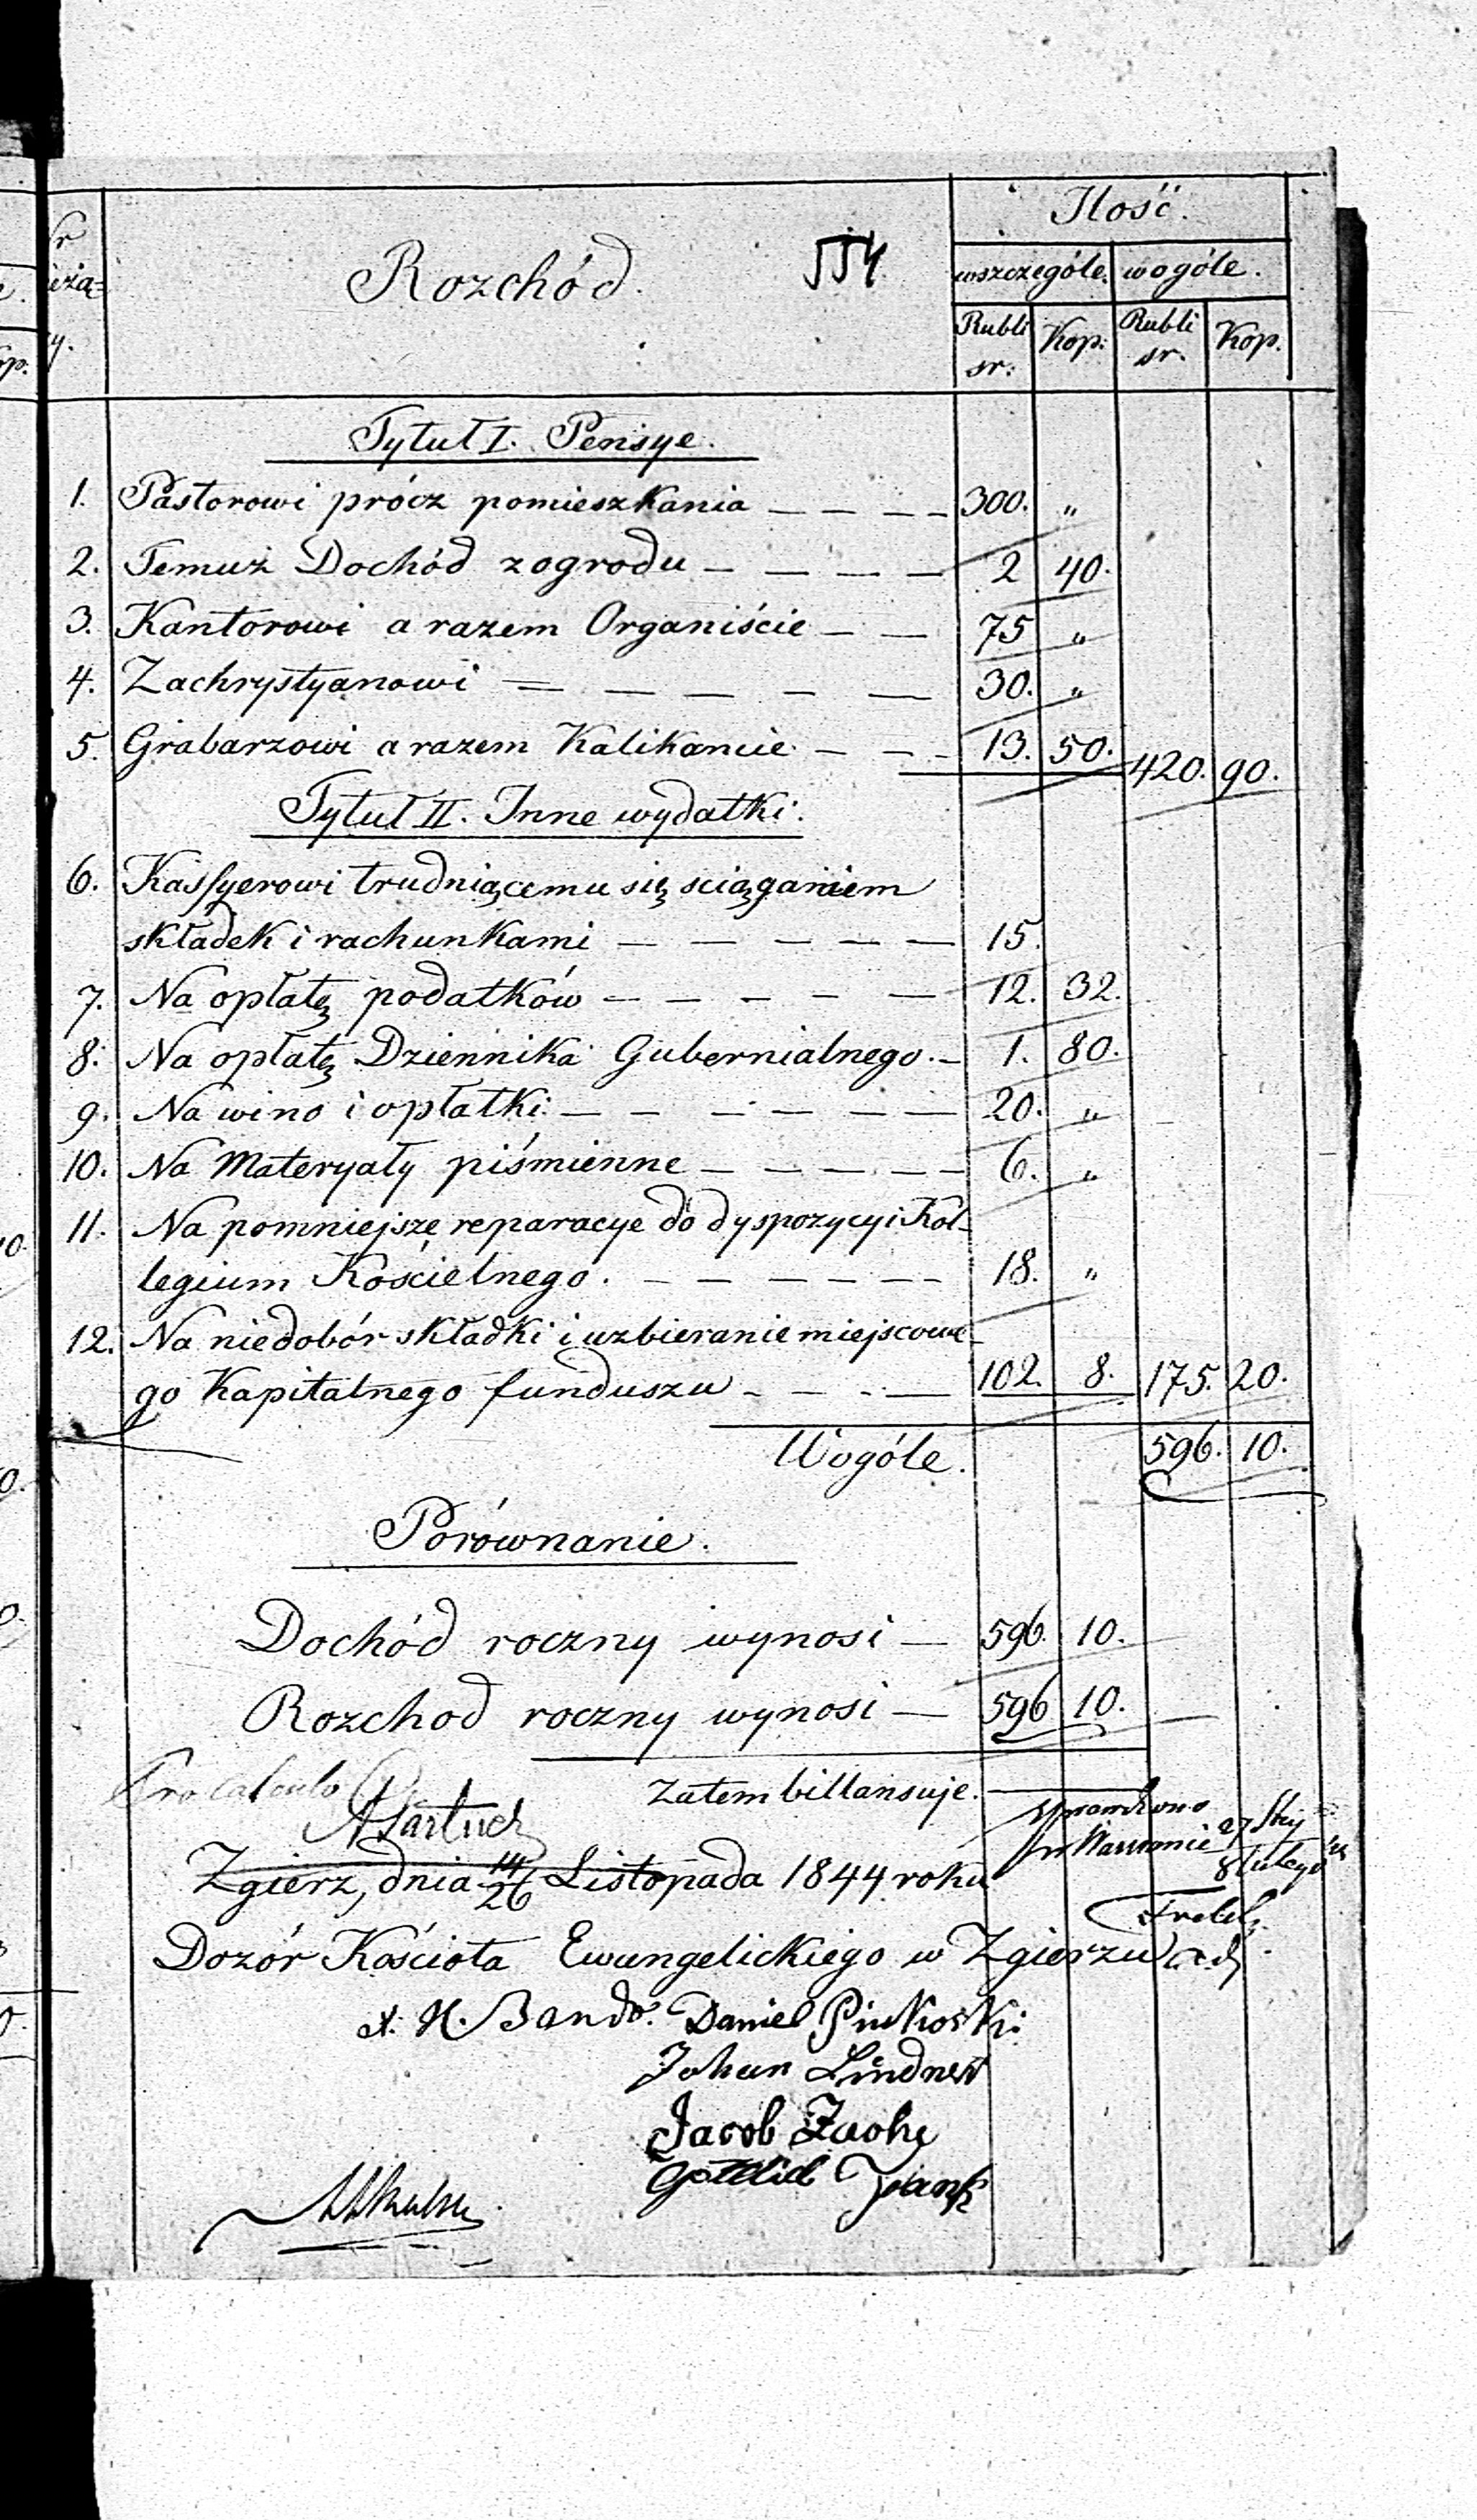 Ilość.
Rozchód. 554
wszczególe. wogóle.
Rubli sr: Kop: Rubli sr. Kop.
Tytuł I. Pensye.
1. Pastorowi prócz pomieszkania — — — — 300. „
2. Temuż Dochód zogrodu — — — — 2 40.
3. Kantorowi a razem Organiście — — 75 „
4. Zachrystyanowi — — — — — 30. „
5. Grabarzowi a razem Kalikancie — — — 13. 50. 420. 90.
Tytuł II. Inne wydatki.
6. Kassyerowi trudniącemu się sciąganiem
składek i rachunkami — — — — — 15.
7. Na opłatę podatków — — — — — 12. 32.
8. Na opłatę Dziennika Gubernialnego. — 1. 80.
9. Na wino i opłatki — — — — — — 20. „
10. Na Materyały piśmienne — — — — — 6. „
11. Na pomniejsze reparacye do dyspozycyi Kol-
legium Kościelnego. — — — — — — 18. „
12. Na niedobór składki i uzbieranie miejscowe-
go Kapitalnego funduszu — — — — 102. 8. 175. 20.
Wogóle. 596. 10.
Porównanie.
Dochód roczny wynosi — 596. 10.
Rozchod roczny wynosi — 596 10.
Pro Calculo zatem billansuje.
Zgierz, dnia 14/26 Listopada 1844 roku
Dozór Kościoła Ewangelickiego w Zgierzu
Daniel
Johan Lindner
Jacob
Gottlieb